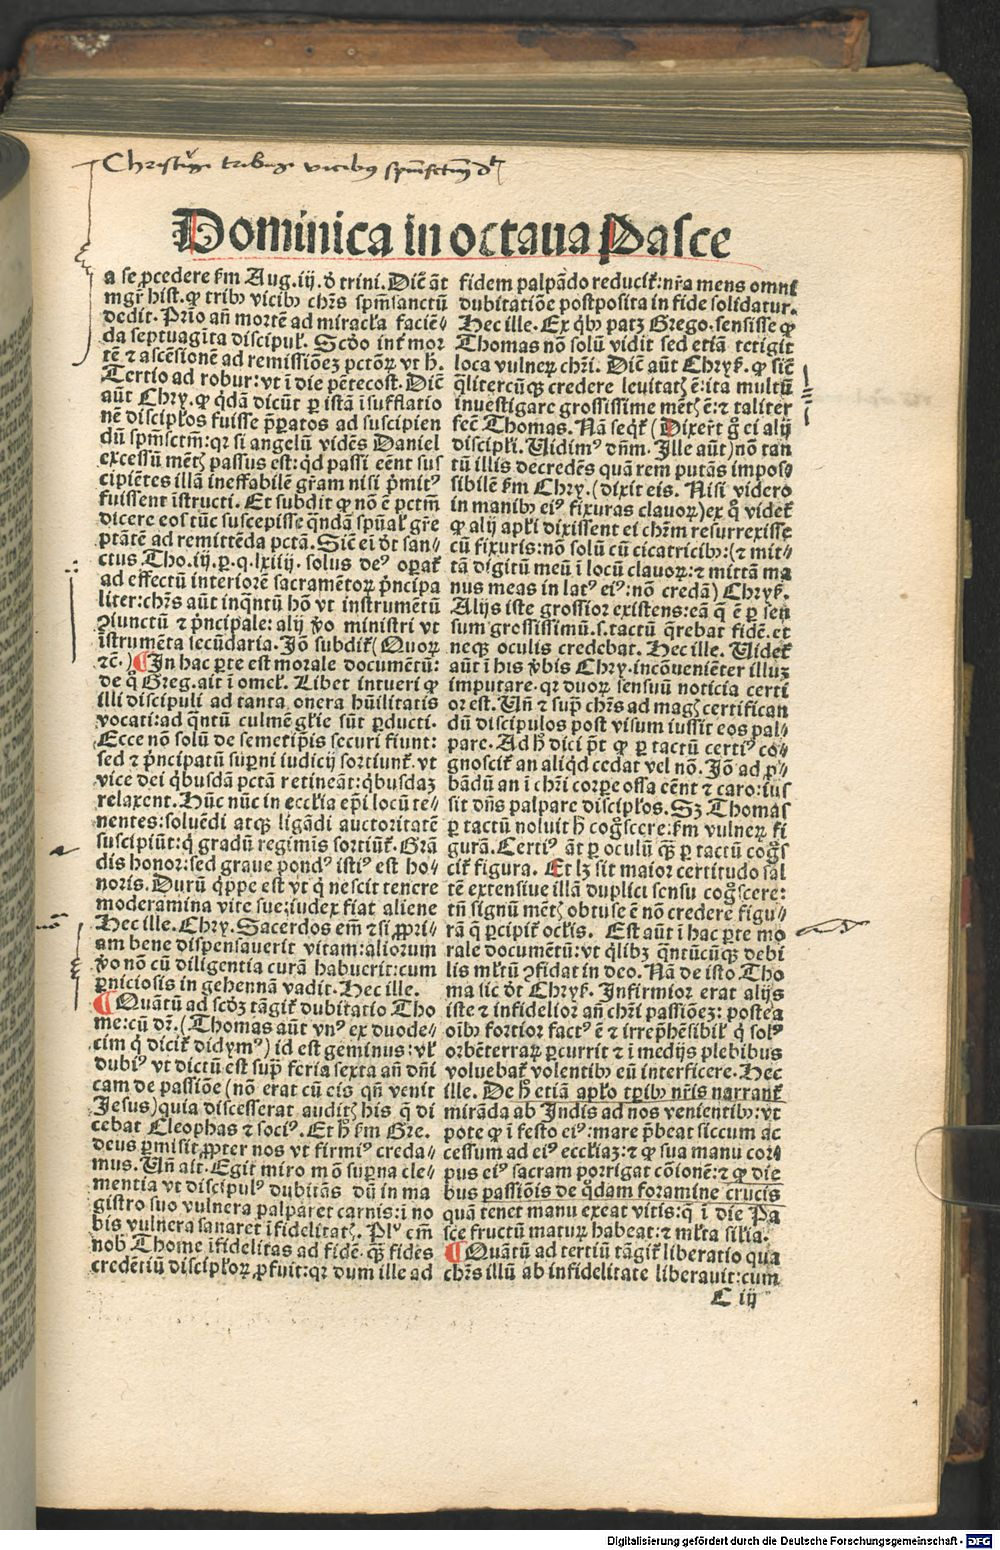 Christus tribus vicibus spmsctm dt
Dominica in octaua Pasce
a se ꝓcedere ẜm Aug. iij. ð trini. Dict̄ āt
mgr̄ hist. ꝙ tribꝰ vicibꝰ chr̄s spm̄sanctū
dedit. Prīo an̄ mortē ad miracła faciē⸗
da septuagīta discipuł. Scd̄o int̄ mor
tē ⁊ ascēsionē ad remissiōeꝫ pctōꝝ vt h̄.
Tertio ad robur: vt ī die pētecost. Dic̄
aūt Chry. ꝙ q̇dā dicūt ꝑ istā īsufflatio
nē discipłos fuisse p̄ꝑatos ad suscipien
dū spm̄sctm̄: qꝛ si angelū vidēs Daniel
excessū mēt passus est: qd̄ passi eēnt sus
cipiētes illā ineffabilē gr̄am nisi p̄mitꝰ
fuissent īstructi. Et subdit ꝙ nō ē pctm̄
dicere eos tūc suscepisse qn̄dā spūał gr̄e
ptātē ad remittēda pctā. Sic̄ ei ð san⸗
ctus. Tho. iij. p. q. lxiiij. solus deꝰ oꝑat̄
ad effectū interiorē sacramētoꝝ p̄ncipa
liter: chr̄s aūt inq̄ntū hō vt instrumētū
ꝯiunctū ⁊ p̄ncipale: alij v̄o ministri vt
īstrumēta secūdaria. Iō subdit̄ (Quoꝝ
⁊c̄.) ¶ In hac ꝑte est morale documētū:
de q̊ Greg. ait ī omeł. Libet intueri ꝙ
illi discipuli ad tanta onera hūilitatis
vocati: ad q̄ntū culmē głie sūt ꝑducti.
Ecce nō solū de semetip̄is securi fiunt:
sed ⁊ p̄ncipatū suꝑni iudicij sortiunt̄. vt
vice dei q̇busdā pctā retineāt: q̇busdaꝫ
relaxent. Hūc nūc in eccłia ep̄i locū te⸗
nentes: soluēdi atqꝫ ligādi auctoritatē
suscipiūt: q̇ gradū regimīs sortiūt̄. Grā
dis honor: sed graue pondꝰ istiꝰ est ho⸗
noris. Durū q̇ppe est vt q̇ nescit tenere
moderamina vite sue: iudex fiat aliene
Hec ille. Chry. Sacerdos em̄ ⁊ si ꝓpri⸗
am bene dispensauerit vitam: aliorum
v̄o nō cū diligentia curā habuerit: cum
ꝑniciosis in gehennā vadit. Hec ille.
¶ Quātū ad scd̄ꝫ tāgit̄ dubitatio Tho
me: cū dr̄. (Thomas aūt vnꝰ ex duode⸗
cim q̇ dicit̄ didymꝰ) id est geminus: vł
dubiꝰ vt dictū est suꝑ feria sexta an̄ dn̄i
cam de passiōe (nō erat cū eis qn̄ venit
Jesus) quia discesserat audit his q̄ di
cebat Cleophas ⁊ sociꝰ. Et h̄ ẜm Gre.
deus ꝑmisit ꝓpter nos vt firmiꝰ creda⸗
mus. Vn̄ ait. Egit miro mō suꝑna cle⸗
mentia vt discipulꝰ dubitās dū in ma
gistro suo vulnera palparet carnis: ī no
bis vulnera sanaret īfidelitat. Plꝰ em̄
nob Thome īfidelitas ad fidē. q̄ꝫ fides
credētiū discipłoꝝ ꝓfuit: qꝛ dum ille ad
fidem palpādo reducit̄: nr̄a mens omni
dubitatiōe postposita in fide solidatur.
Hec ille. Ex q̇bꝰ patꝫ Grego. sensisse ꝙ
Thomas nō solū vidit sed etiā tetigit
loca vulneꝝ chr̄i. Dic̄ aūt Chryſ. ꝙ sic̄
q̄litercūqꝫ credere leuitat ē: ita multū
inuestigare grossissime mēt ē: ⁊ taliter
fec̄ Thomas. Nā seqt̄ (Dixerūt g̊ ei alij
discipłi. Uidimꝰ dn̄m. Ille aūt) nō tan
tū illis decredēs quā rem putās impos⸗
sibilē ẜm Chry. (dixit eis. Nisi videro
in manibꝰ eiꝰ fixuras clauoꝝ) ex q̊ videt̄
ꝙ alij apłi dixissent ei chr̄m resurrexisse
cū fixuris: nō solū cū cicatricibꝰ: (⁊ mit⸗
tā digitū meū ī locū clauoꝝ: ⁊ mittā ma
nus meas in latꝰ eiꝰ: nō credā) Chryſ.
Alijs iste grossior existens: eā q̄ ē ꝑ sen
sum grossissimū. s. tactū q̄rebat fidē. et
neqꝫ oculis credebat. Hec ille. Uidet̄
aūt ī his v̄bis Chry. incōueniēter illuꝫ
imputare. qꝛ duoꝝ sensuū noticia certi
or est. Vn̄ ⁊ suꝑ chr̄s ad mag certifican
dū discipulos post visum iussit eos pal⸗
pare. Ad h̄ dici pt̄ ꝙ ꝑ tactū certiꝰ co⸗
gnoscit̄ an aliqd̄ cedat vel nō. Iō ad ꝓ⸗
bādū an ī chr̄i corꝑe ossa eēnt ⁊ caro: ius
sit dn̄s palpare discipłos. Sꝫ Thomas
ꝑ tactū noluit h̄ cog̊scere: ẜm vulneꝝ fi
gurā. Certiꝰ āt ꝑ oculū q̄ꝫ ꝑ tactū cog̊s
cit̄ figura. Et lꝫ sit maior certitudo sal
tē extensiue illā duplici sensu cog̊scere:
tn̄ signū mēt obtuse ē nō credere figu⸗
rā q̄ ꝑcipit̄ ocłis. Est aūt ī hac ꝑte mo
rale documētū: vt q̇libꝫ q̄ntūcūqꝫ debi
lis młtū ꝯfidat in deo. Nā de isto Tho
ma sic ð Chryſ. Infirmior erat alijs
iste ⁊ infidelior an̄ chr̄i passiōeꝫ: postea
oībꝰ fortior factꝰ ē ⁊ irrep̄hēsibił q̇ solꝰ
orbēterraꝝ ꝑcurrit ⁊ ī medijs plebibus
voluebat̄ volentibꝰ eū interficere. Hec
ille. De h̄ etiā apło tribꝰ nr̄is narrant̄
mirāda ab Indis ad nos venientibꝰ: vt
pote ꝙ ī festo eiꝰ: mare p̄beat siccum ac
cessum ad eiꝰ eccłiaꝫ: ⁊ ꝙ sua manu cor⸗
pus eiꝰ sacram porrigat cōionē: ⁊ ꝙ die
bus passiōis de q̇dam foramine crucis
quā tenet manu exeat vitis: q̇ ī die Pa
sce fructū matuꝝ habeat: ⁊ młta silia.
¶ Quātū ad tertiū tāgit̄ liberatio qua
chr̄s illū ab infidelitate liberauit: cum
C iij
Digitalisierung gefördert durch die Deutsche Forschungsgemeinschaft - DFG